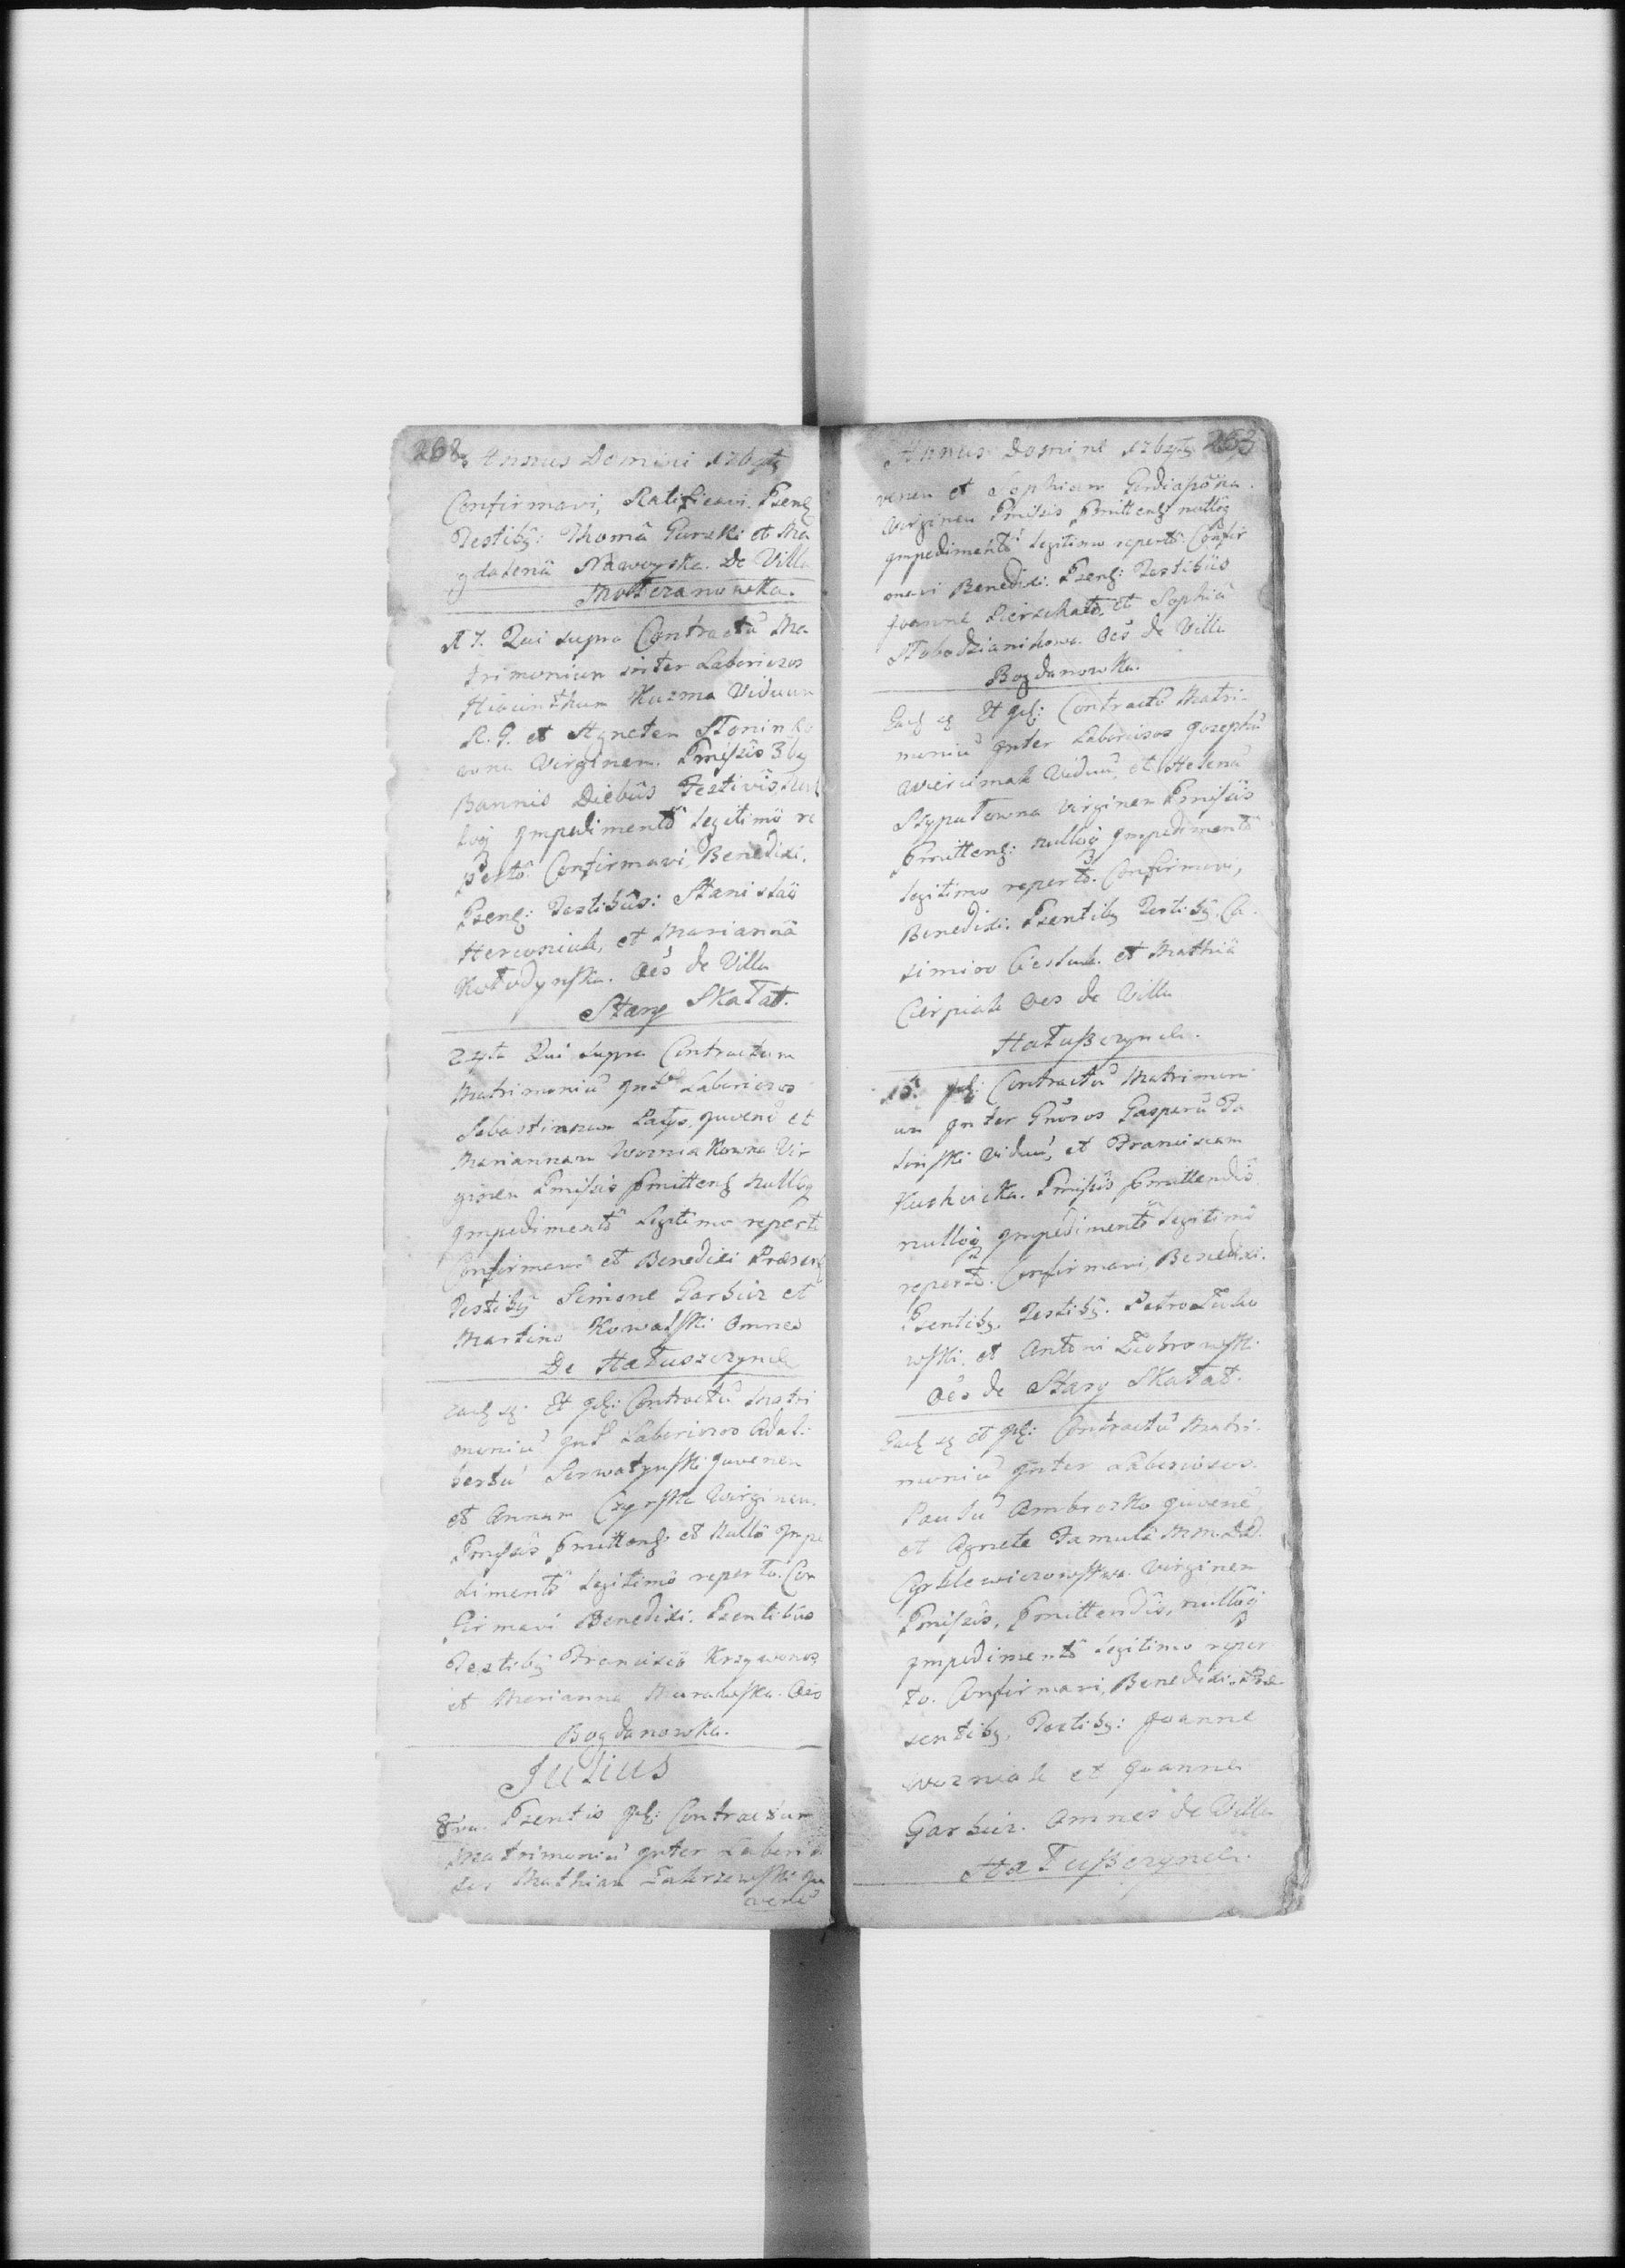 262
Annus Domini 1764t
Confirmavi, Ratificavi. Psent
Testibg: Thomâ Gurski et Ma
gdalenâ Nawoyska. De Villa
Mołczanowka.
A I. Qui supra Contractũ Ma
trimonium inter Laboriosos
Hiacinthum Kuzma Viduum
R. G. et Agneten Słonink
owna Virginem. Pmissis 3bg
Bannis Diebûs Festivis nul
loq Impedimentô Legitimô re
pertô. Confirmavi, Benedixi.
Pseng: Testibûs: Stanislaô
Herconiuk, et Mariannâ
Kołodynska. Oes de Villa
Stary Skałat.
24ta Qui supra Contractum
Matrimoniũ Int Laboriosos
Sebastianum Łatys, Iuvenẽ et
Mariannam Wozniakowna Vir
ginem Pmissis pmitteng nulloq
Impedimentô Legitimo repertô
Confirmavi et Benedixi Præsent
Testibg Simone Garbuz et
Martino Kowalski Omnes
De Hałuszczynce
Eadg sg. Et Iplg: Contractũ Matri
moniũ Int Laboriosos Adal
bertũ Serwatynski Iuvenem
et Annam Czyrska Virginem.
Pmissis pmitteng et Nullô Impe
dimentô Legitimô reperto. Con
firmavi Benedixi. Psentibûs
Testibg Franciscô Krzywonos,
et Marianna Murawska. Oes
Bogdanowka.
Julius
8va. Psentis Iplg: Contractum
Matrimoniũ Inter Laborio
sos Mathiam Zakrzewski Iu
venẽ
Annus Domini 1764tg 263
venem et Sophiam
Virginem Pmissis pmitteng nulloq
Impedimentô Legitimo repertô. Confir
mavi Benedixi. Pseng: Testibûs
Joanne et Sophiâ
Słobodzianikowa. Oes de Villa
Bogdanowka.
Eadg sg Et Iplg: Contractũ Matri-
moniũ Inter Laboriosos Josephũ
Wiercimak Viduũ, et Helenã
Szypułowna Virginem Pmissis
pmitteng: nulloq Impedimentô
Legitimo repertô. Confirmavi,
Benedixi. Psentibg Testibg. Ca
simiro Cieslak. et Mathiâ
Cierpiak Oes de Villa
Hałußczynce.
15. Iplg: Contractũ Matrimoni
um Inter Gñosos Gasparũ Ja
sinski Viduũ, et Franciscam
Kucharska. Pmissis pmittendis
nulloq Impedimentô Legitimô
repertô. Confirmavi, Benedixi.
Psentibg. Testibg. Petro Żuko
wski, et Antoni Ziobrowski
Oes de Stary Skałat.
Eadg sg et Iplg: Contractũ Matri-
moniũ Inter Laboriosos.
Paulũ Ambrozko Iuvenẽ,
et Agnete Famulâ M.M.DD.
Virginem
Pmissis, pmittendis, nulloq
Impedimentô Legitimo reper
to. Confirmavi, Benedixi. Præ
sentibg, Testibg: Joanne
Wozniak et Joanne
Garbuz. Omnes de Villa
Hałußczynce.